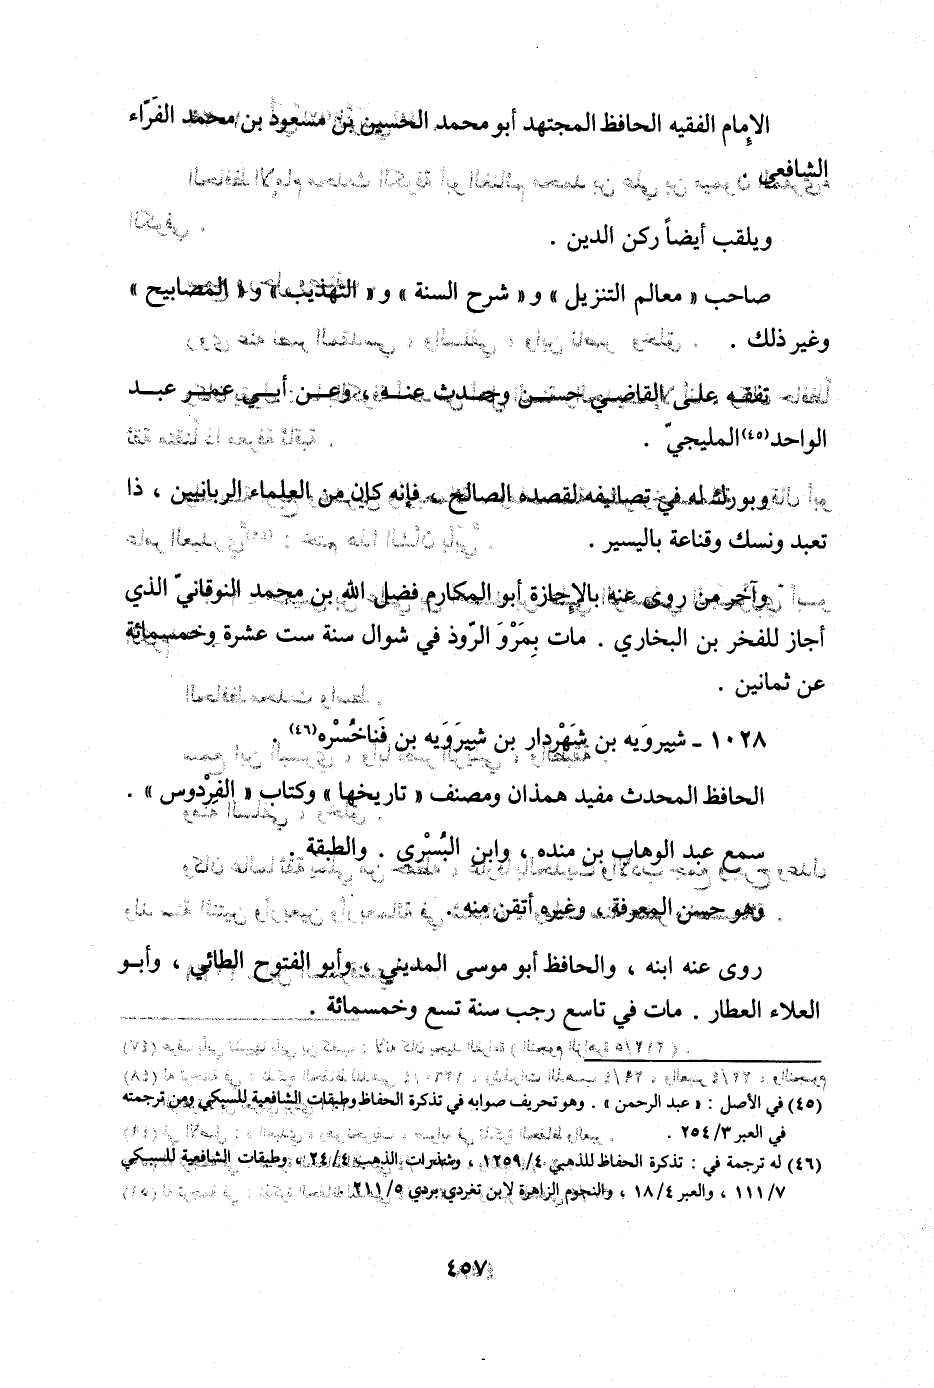 الإمام الفقيه الحافظ المجتهد أبو محمد الحسين بن مسعود بن محمد الفَرّاء
الشافعي .
ويلقب أيضاً ركن الدين .
صاحب « معالم التنزيل » و « شرح السنة » و « التهذيب » و « المصابيح »
وغير ذلك .
تفقه على القاضي حسين وحدث عنه ، وعن أبي عمر عبد
الواحد(٤٥) المليجيّ .
وبورك له في تصانيفه لقصده الصالح ، فإنه كان من العلماء الربانيين ، ذا
تعبد ونسك وقناعة باليسير .
وآخر من روى عنه بالإجازة أبو المكارم فضل الله بن محمد النوقانيّ الذي
أجاز للفخر بن البخاري . مات بِمَرْوَ الرّوذ في شوال سنة ست عشرة وخمسمائة
عن ثمانين .
١٠٢٨ ـ شيروَيه بن شَهْردار بن شيرَوَيه بن فَناخُسْره(٤٦) .
الحافظ المحدث مفيد همذان ومصنف « تاريخها » وكتاب « الفِرْدوس » .
سمع عبد الوهاب بن منده ، وابن البُسْري . والطبقة .
وهو حسن المعرفة ، وغيره أتقن منه .
روى عنه ابنه ، والحافظ أبو موسى المديني ، وأبو الفتوح الطائي ، وأبو
العلاء العطار . مات في تاسع رجب سنة تسع وخمسمائة .
(٤٥) في الأصل : « عبد الرحمن » . وهو تحريف صوابه في تذكرة الحفاظ وطبقات الشافعية للسبكي ومن ترجمته
في العبر ٢٥٤/٣ .
(٤٦) له ترجمة في : تذكرة الحفاظ للذهبي ١٢٥٩/٤ ، وشذرات الذهب ٢٤/٤ ، وطبقات الشافعية للسبكي
١١١/٧ ، والعبر ١٨/٤ ، والنجوم الزاهرة لابن تغردي بردي ٢١١/٥
٤٥٧